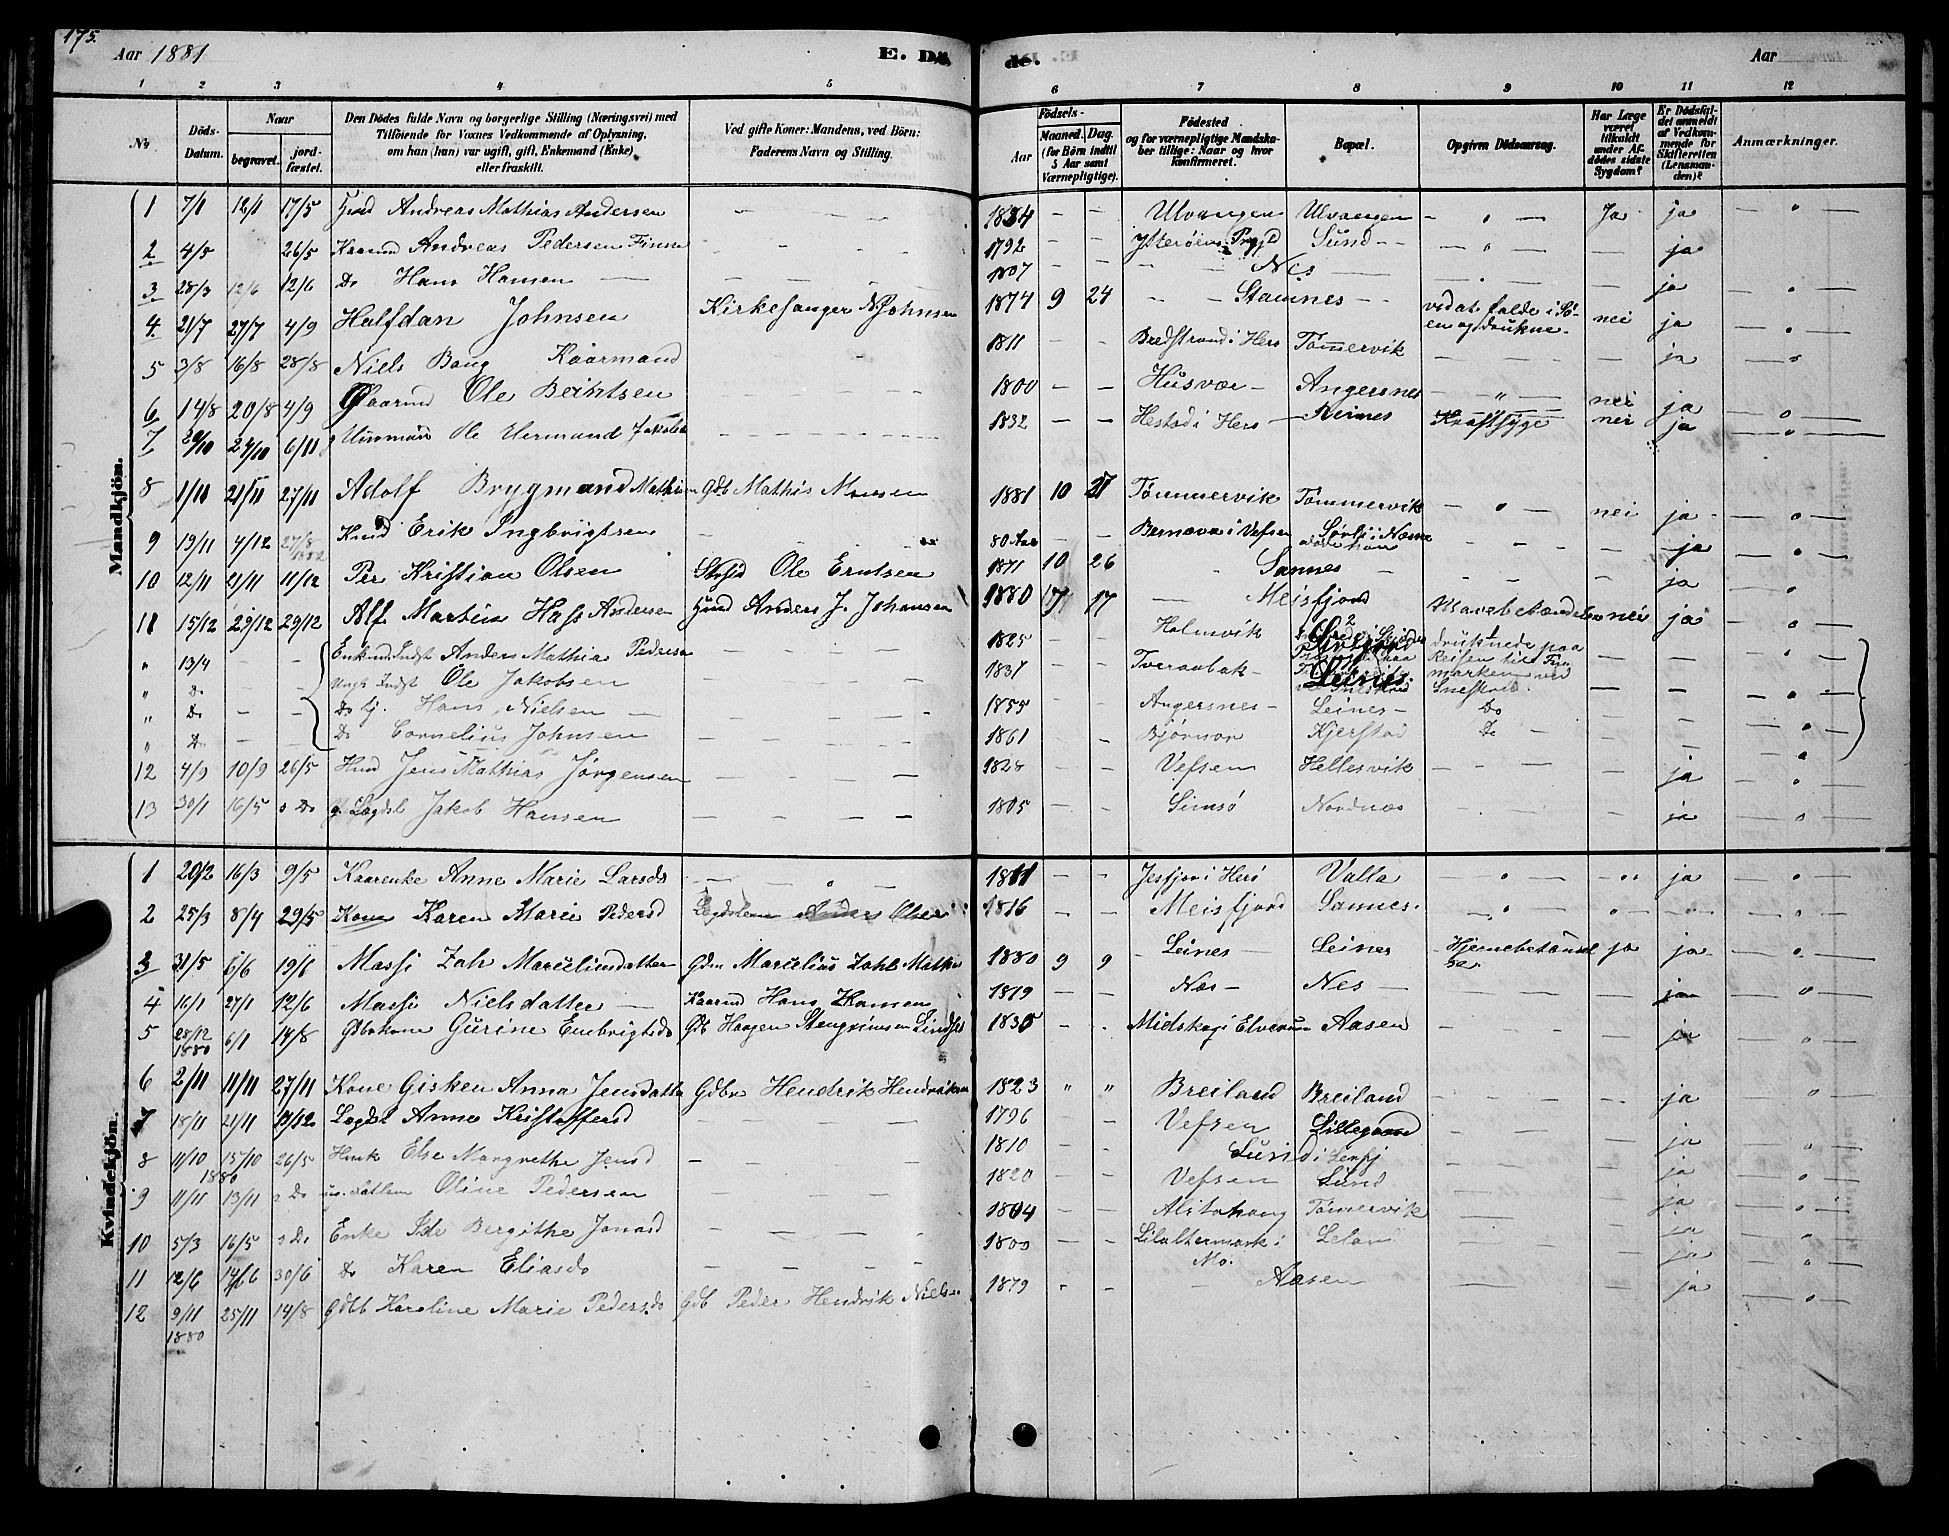 175.
Aar 1881
E. Dö
de.
Aar
1 2 3 4 5 6 7 8 9 10 11 12
No.
Döds-Datum.
Naar
begravet.
jord-fæstet.
Den Dödes fulde Navn og borgerlige Stilling (Næringsvei) med
Tilföiende for Voxnes Vedkommende af Oplysning,
om han (hun) var ugift, gift, Enkemand (Enke)
eller fraskilt.
Ved gifte Koner: Mandens, ved Börn:
Faderens Navn og Stilling.
Födsels-
Aar
Maaned. Dag.
(for Börn indtil
5 Aar samt
Værnepligtige).
Födested
og for værnepligtige Mandska-
ber tillige: Naar og hvor
konfirmeret.
Bopæl.
Opgiven Dödsaarsag.
Har Læge
været
tilkaldt
under Af-
dödes sidste
Sygdom?
Er Dödsfal-
det anmeldt
af Vedkom-
mende for
Skifteretten
(Lensman-
den)?
Anmærkninger.
Mandkjön.
1 7/1 12/1 17/5 Hmd Andreas Mathias Andersen - - - 1834 - - Ulvangen Ulvangen - " - Ja ja - " -
2 4/5 26/5 Kaarmd Andreas Pedersen Finne - - - 1792 - - Ytterøens Prgjld Sund - - - " - ja
3 28/3 12/6 12/6 Do Hans Hansen - - - 1807 - - - Nes - ja
4 21/7 27/7 4/9 Halfdan Johnsen Kirkesanger N. Johnsen 1874 9 24 - - Stamnes - - ved at falde i Sø-
en og drukne. nei ja - " -
5 3/8 16/8 28/8 Niels Bang Kaarmand - 1811 - - Bredstrand i Herø Tømmervik - - ja - " -
6 14/8 20/8 4/9 Kaarmd Ole Berntsen - - - 1800 - - Husvær - Angersnes - " - nei ja - " -
7 20/10 24/10 6/11 Ole Hermand Jakobs - - - 1832 - - Hestad i Herø - Reines Kræftsyge nei ja - " -
8 1/11 21/11 27/11 Adolf Brygmand Mathisen Gdb Mathis Monsen 1881 10 27 Tømmervik Tømmervik - " - nei ja - " -
9 19/11 4/12 27/8 1882 Kmd Erik Ingbrigtsen - - 80 Aar - - i Vefsen - - - ja - " -
10 12/11 21/11 11/12 Per Kristian Olsen Ole Erntsen 1871 10 26 " Sannes - - - - ja - " -
11 15/12 29/12 29/12 Alf Martin Hass Andersen Hmd Anders J. Johansen 1880 7 17 - Meisfjord nei ja - " -
" 13/4 - - Enkmd Indst Anders Mathias Pedersen - - - 1825 - - Holmvik druknede paa
" Do - - Ungk Indst Ole Jakobsen - - - 1831 - - Tveraabak - Leines Reisen til Fin-
marken ved
" Do - - Do Hans Nielsen - - - 1855 - - Angersnes - Leines - Do - " -
" Do - - Do Cornelius Johnsen - - - 1861 - - Bjørnør Kjerstad Do - " -
12 4/9 10/9 26/5 Hmd Jens Mathias Jørgensen - - - 1828 - - Vefsen Hellesvik - - - ja - " -
13 30/1 16/5 " Do Lægdsl Jakob Hansen - - - 1805 - - Simsø Nordnæs - - - ja - " -
Kvindekjön.
1 20/2 16/3 9/5 Kaarenke Anne Marie Larsds - " - 1811 - - i Herø Valla - " - - ja - " -
2 25/3 8/4 29/5 Kone Karen Marie Pedersd Lægdslem Anders Olsen 1816 - - Meisfjord Sannes. - " - - - - " -
3 31/5 6/6 19/6 Massi Zahl Marceliusdatter Gdm Marcelius Zahl Mathis 1880 9 9 - Leines - Leines Hjernebetændel
se. ja ja - " -
4 16/1 27/1 12/6 Massi Nielsdatter - Kaarmd Hans Hansen 1819 - - Nes - Nes - - - - ja - " -
5 28/12 1880 6/1 14/8 Gdbkone Gurine Embrigtsds Gdb Haagen 1835 - - Midskog i Elverum Aasen - - - ja - " -
6 2/11 11/11 27/11 Kone Gisken Anna Jensdatter Gdbr Hendrik Hendriksen 1823 " " Breiland Breiland - - - ja "
7 18/11 21/11 11/12 Lægdsl Anne Kristoffersd 1796 Vefsen Lillegaard - - - ja - " -
8 11/10 1880 15/10 26/5 Else Margrethe Jensd - - - 1810 - Sund i Leirfj ja - " -
9 11/11 13/11 " Do Oline Pedersen - - - 1820 - - Vefsen Lund - - ja - " -
10 5/3 16/5 " Do Enke Ide Bergithe Jonasd - - - 1804 - - Alstahaug Tømmervik - - ja - " -
11 12/6 14/6 30/6 Do Karen Eliasds - - - 1800 - - Lilaltermark i
Mo. Leland - - ja - " -
12 9/11 1880 25/11 14/8 Gdbb Karoline Marie Pedersds Gdb Peder Hendrik Nielsen 1879 - - - Aasen - - ja - " -